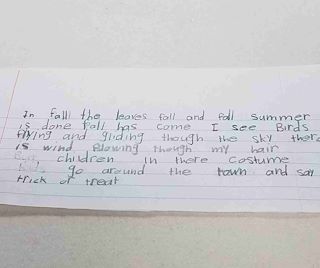 In fall the leaves fall and fall summer
is done Fall has come I see Birds
flying and gliding though the sky there
is wind Blowing though my hair
children in there costume
go around the town and say
trick or treat